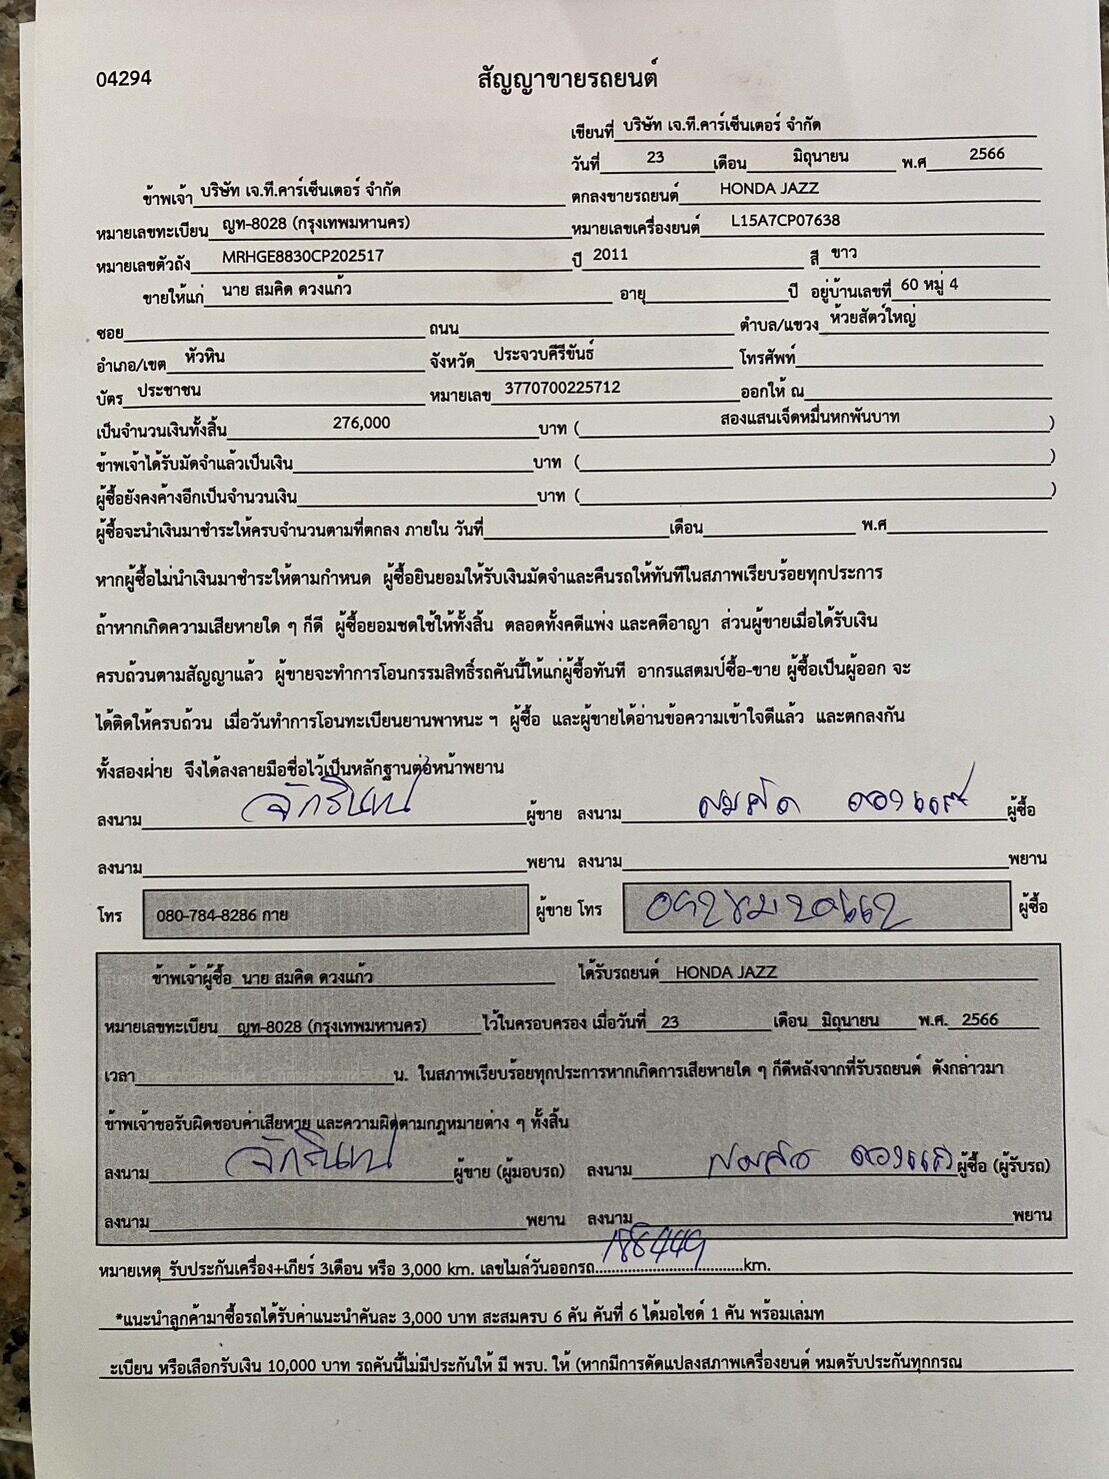 04294
สัญญาขายรถยนต์
เขียนที่ บริษัท เจ.ที.คาร์เซ็นเตอร์ จำกัด
วันที่ 23 เดือน มิถุนายน พ.ศ 2566
ข้าพเจ้า บริษัท เจ.ที.คาร์เซ็นเตอร์ จำกัด ตกลงขายรถยนต์ HONDA JAZZ
หมายเลขทะเบียน ญท-8028 (กรุงเทพมหานคร) หมายเลขเครื่องยนต์ L15A7CP07638
หมายเลขตัวถัง MRHGE8830CP202517 ปี 2011 สี ขาว
ขายให้แก่ นาย สมคิด ดวงแก้ว อายุ ปี อยู่บ้านเลขที่ 60 หมู่ 4
ซอย ถนน ตำบล/แขวง ห้วยสัตว์ใหญ่
อำเภอ/เขต หัวหิน จังหวัด ประจวบคีรีขันธ์ โทรศัพท์
บัตร ประชาชน หมายเลข 3770700225712 ออกให้ ณ
เป็นจำนวนเงินทั้งสิ้น 276,000 บาท ( สองแสนเจ็ดหมื่นหกพันบาท )
ข้าพเจ้าได้รับมัดจำแล้วเป็นเงิน บาท ( )
ผู้ซื้อยังคงค้างอีกเป็นจำนวนเงิน บาท ( )
ผู้ซื้อจะนำเงินมาชำระให้ครบจำนวนตามที่ตกลง ภายใน วันที่ เดือน พ.ศ
หากผู้ซื้อไม่นำเงินมาชำระให้ตามกำหนด ผู้ซื้อยินยอมให้รับเงินมัดจำและคืนรถให้ทันทีในสภาพเรียบร้อยทุกประการ
ถ้าหากเกิดความเสียหายใด ๆ ก็ดี ผู้ซื้อยอมชดใช้ให้ทั้งสิ้น ตลอดทั้งคดีแพ่ง และคดีอาญา ส่วนผู้ขายเมื่อได้รับเงิน
ครบถ้วนตามสัญญาแล้ว ผู้ขายจะทำการโอนกรรมสิทธิ์รถคันนี้ให้แก่ผู้ซื้อทันที อากรแสตมป์ซื้อ-ขาย ผู้ซื้อเป็นผู้ออก จะ
ได้ติดให้ครบถ้วน เมื่อวันทำการโอนทะเบียนยานพาหนะ ฯ ผู้ซื้อ และผู้ขายได้อ่านข้อความเข้าใจดีแล้ว และตกลงกัน
ทั้งสองฝ่าย จึงได้ลงลายมือชื่อไว้เป็นหลักฐานต่อหน้าพยาน
ลงนาม จักรินทน์ ผู้ขาย ลงนาม สมคิด ดวงแก้ว ผู้ซื้อ
ลงนาม พยาน ลงนาม พยาน
โทร 080-784-8286 กาย ผู้ขาย โทร ผู้ซื้อ
ข้าพเจ้าผู้ซื้อ นาย สมคิด ดวงแก้ว ได้รับรถยนต์ HONDA JAZZ
หมายเลขทะเบียน ญท-8028 (กรุงเทพมหานคร) ไว้ในครอบครอง เมื่อวันที่ 23 เดือน มิถุนายน พ.ศ. 2566
เวลา น. ในสภาพเรียบร้อยทุกประการหากเกิดการเสียหายใด ๆ ก็ดีหลังจากที่รับรถยนต์ ดังกล่าวมา
ข้าพเจ้าขอรับผิดชอบค่าเสียหาย และความผิดตามกฎหมายต่าง ๆ ทั้งสิ้น
ลงนาม จักรินทน์ ผู้ขาย (ผู้มอบรถ) ลงนาม สมคิด ดวงแก้ว ผู้ซื้อ (ผู้รับรถ)
ลงนาม พยาน ลงนาม พยาน
หมายเหตุ รับประกันเครื่อง+เกียร์ 3เดือน หรือ 3,000 km. เลขไมล์วันออกรถ 188449 km.
*แนะนำลูกค้ามาซื้อรถได้รับค่าแนะนำคันละ 3,000 บาท สะสมครบ 6 คัน คันที่ 6 ได้มอไซด์ 1 คัน พร้อมเล่มท
ะเบียน หรือเลือกรับเงิน 10,000 บาท รถคันนี้ไม่มีประกันให้ มี พรบ. ให้ (หากมีการดัดแปลงสภาพเครื่องยนต์ หมดรับประกันทุกกรณ